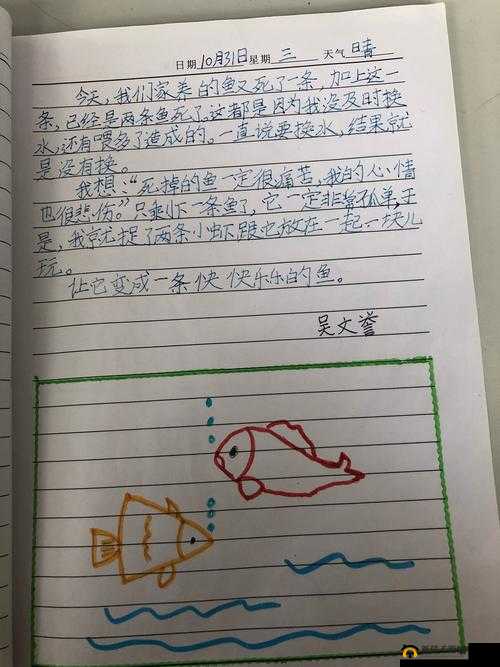 日期10月31日星期三 天气晴
今天，我们家养的鱼又死了一条，加上这一
条，已经是两条鱼死了。这都是因为我没及时换
水，还有喂多了造成的。一直说要换水，结果就
是没有换。
我想：“死掉的鱼一定很痛苦，我的心情
也很悲伤。”只剩下一条鱼了，它一定非常孤单，于
是，我就捉了两条小虾跟它放在一起一块儿
玩。
让它变成一条快快乐乐的鱼。
吴文誉